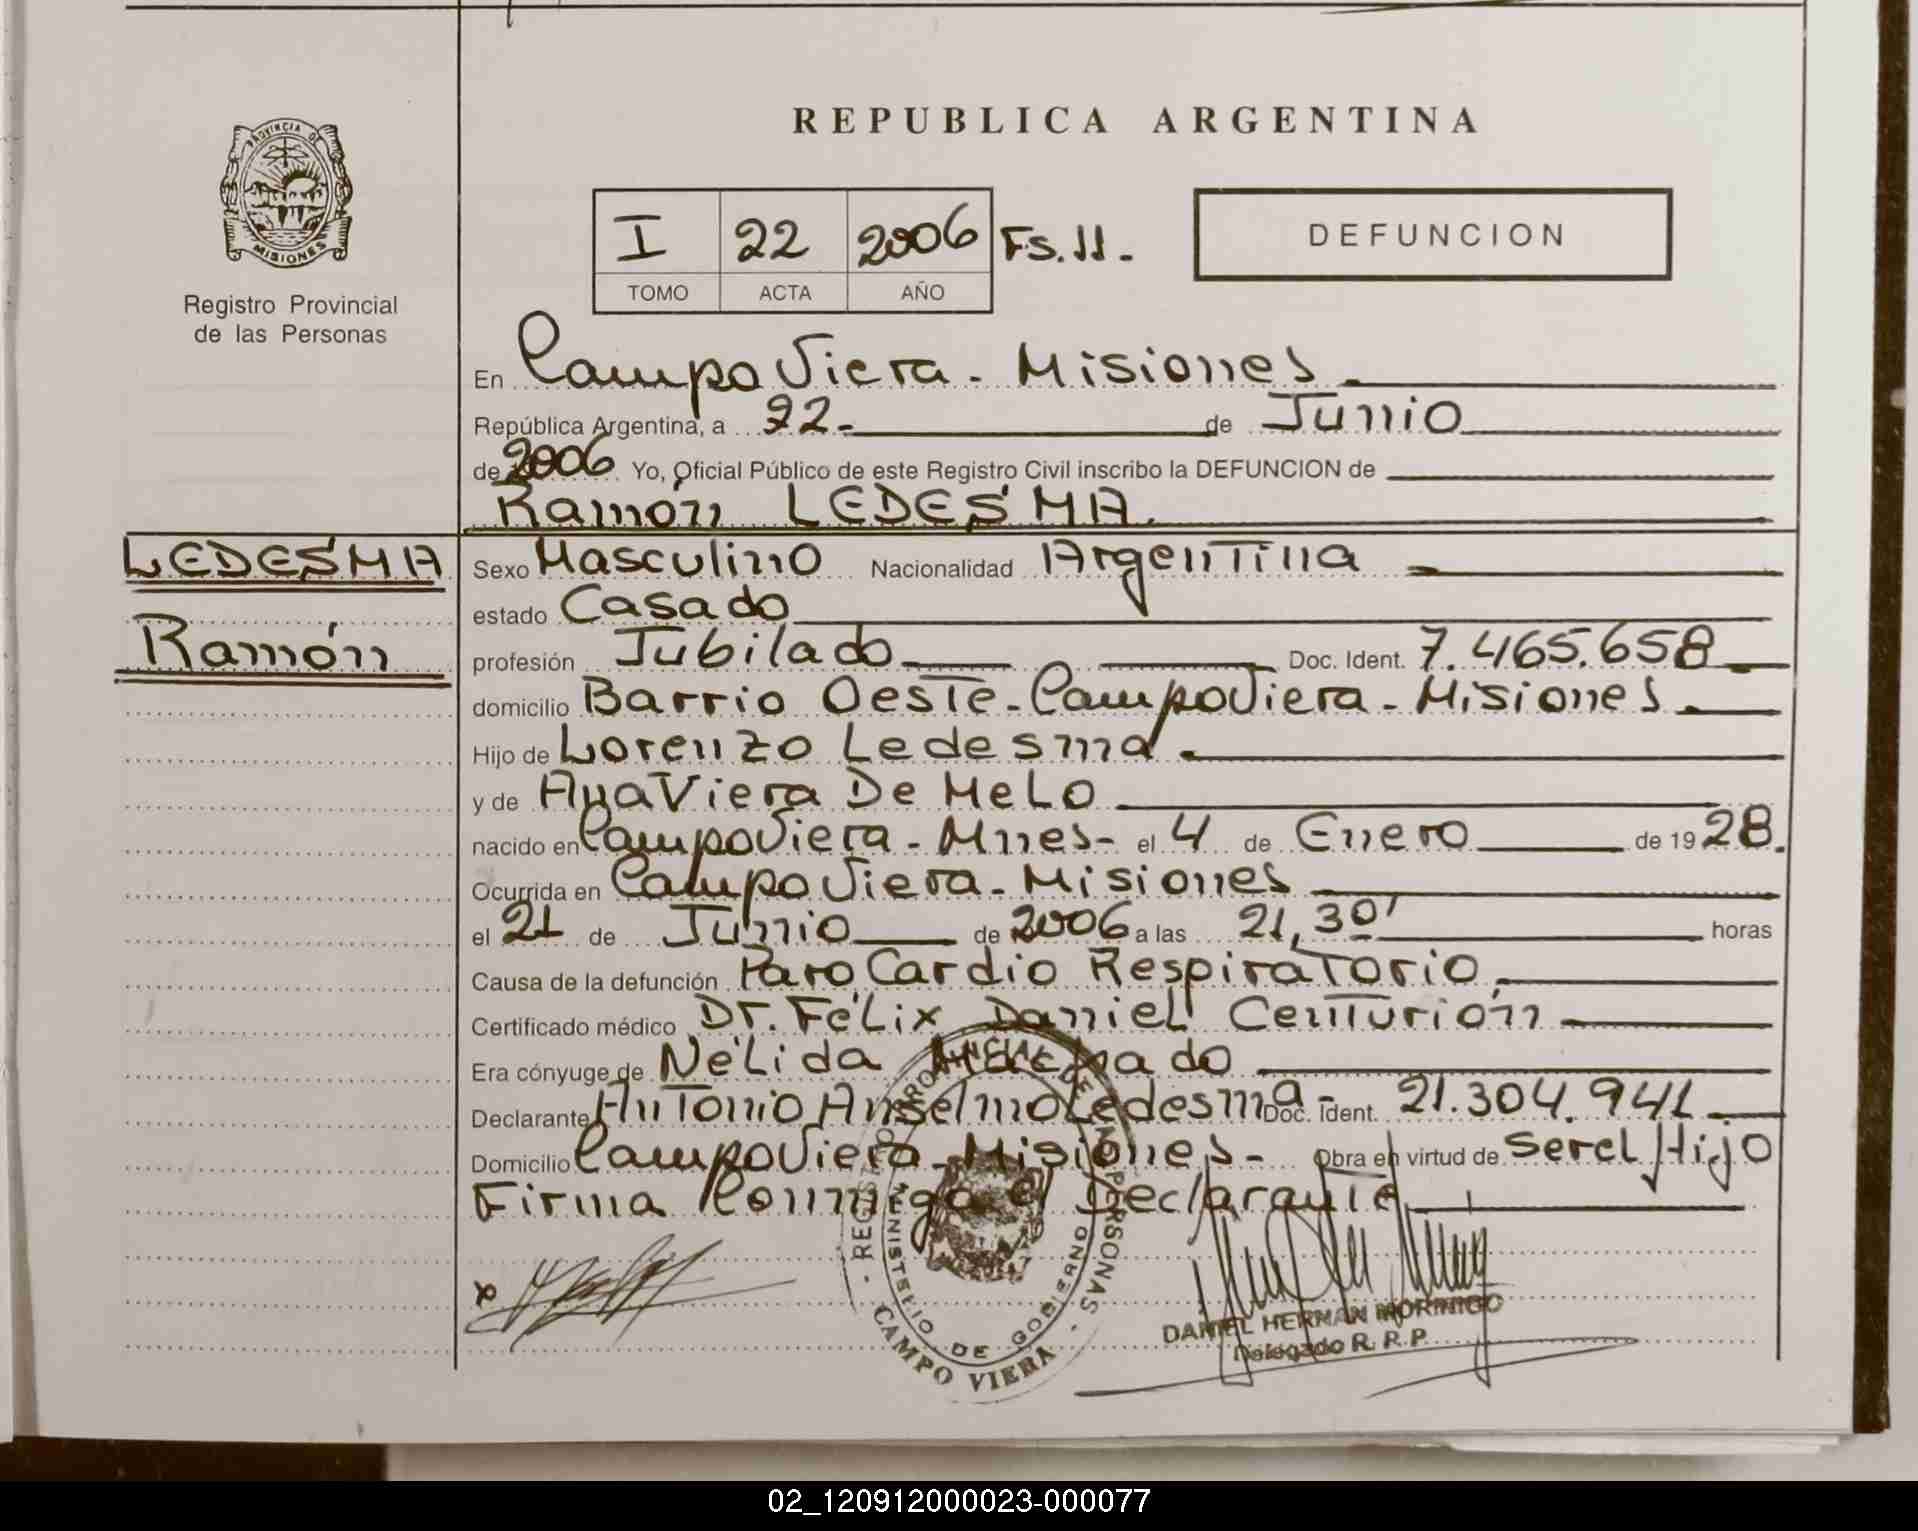 REPUBLICA ARGENTINA
PROVINCIA DE
MISIONES
Registro Provincial
de las Personas
I 22 2006 Fs. 11.
TOMO ACTA AÑO
DEFUNCION
En Campo Viera - Misiones
República Argentina, a 22 - de Junio
de 2006 Yo, Oficial Público de este Registro Civil inscribo la DEFUNCION de
Ramón LEDESMA
LEDESMA
Ramón
Sexo Masculino Nacionalidad Argentina
estado Casado
profesión Jubilado Doc. Ident. 7.465.658
domicilio Barrio Oeste - Campo Viera - Misiones
Hijo de Lorenzo Ledesma
y de Ana Viera De Melo
nacido en Campo Viera - Mnes - el 4 de Enero de 1928.
Ocurrida en Campo Viera - Misiones
el 21 de Junio de 2006 a las 21,30' horas
Causa de la defunción Paro Cardio Respiratorio
Certificado médico Dr. Félix Daniel Centurión
Era cónyuge de Nélida Machado
Declarante Antonio Anselmo Ledesma - Doc. Ident. 21.304.941
Domicilio Campo Viera - Misiones - Obra en virtud de Ser el Hijo
Firma Conmigo el Declarante
REGISTRO PROVINCIAL DE LAS PERSONAS
MINISTERIO DE GOBIERNO
CAMPO VIERA
DANIEL HERNAN MORINIGO
Delegado R. P. P.
02_120912000023-000077